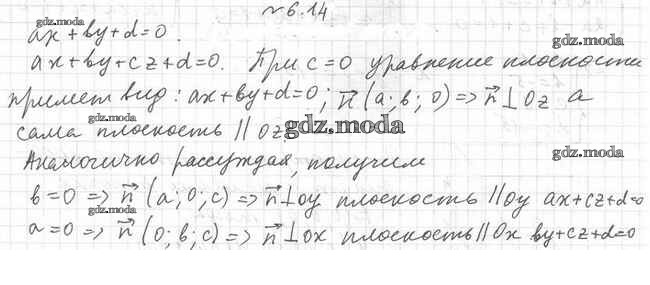 № 6.14
gdz.moda
ax + by + d = 0.
gdz.moda
ax + by + cz + d = 0. При c = 0 уравнение плоскости
gdz.moda
примет вид: ax + by + d = 0; n⃗ (a; b; 0) => n⃗ ⊥ Oz а
сама плоскость || Oz. gdz.moda
Аналогично рассуждая, получим
gdz.moda
b = 0 => n⃗ (a; 0; c) => n⃗ ⊥ oy плоскость || Oy ax + cz + d = 0
gdz.moda
gdz.moda
a = 0 => n⃗ (0; b; c) => n⃗ ⊥ ox плоскость || Ox by + cz + d = 0